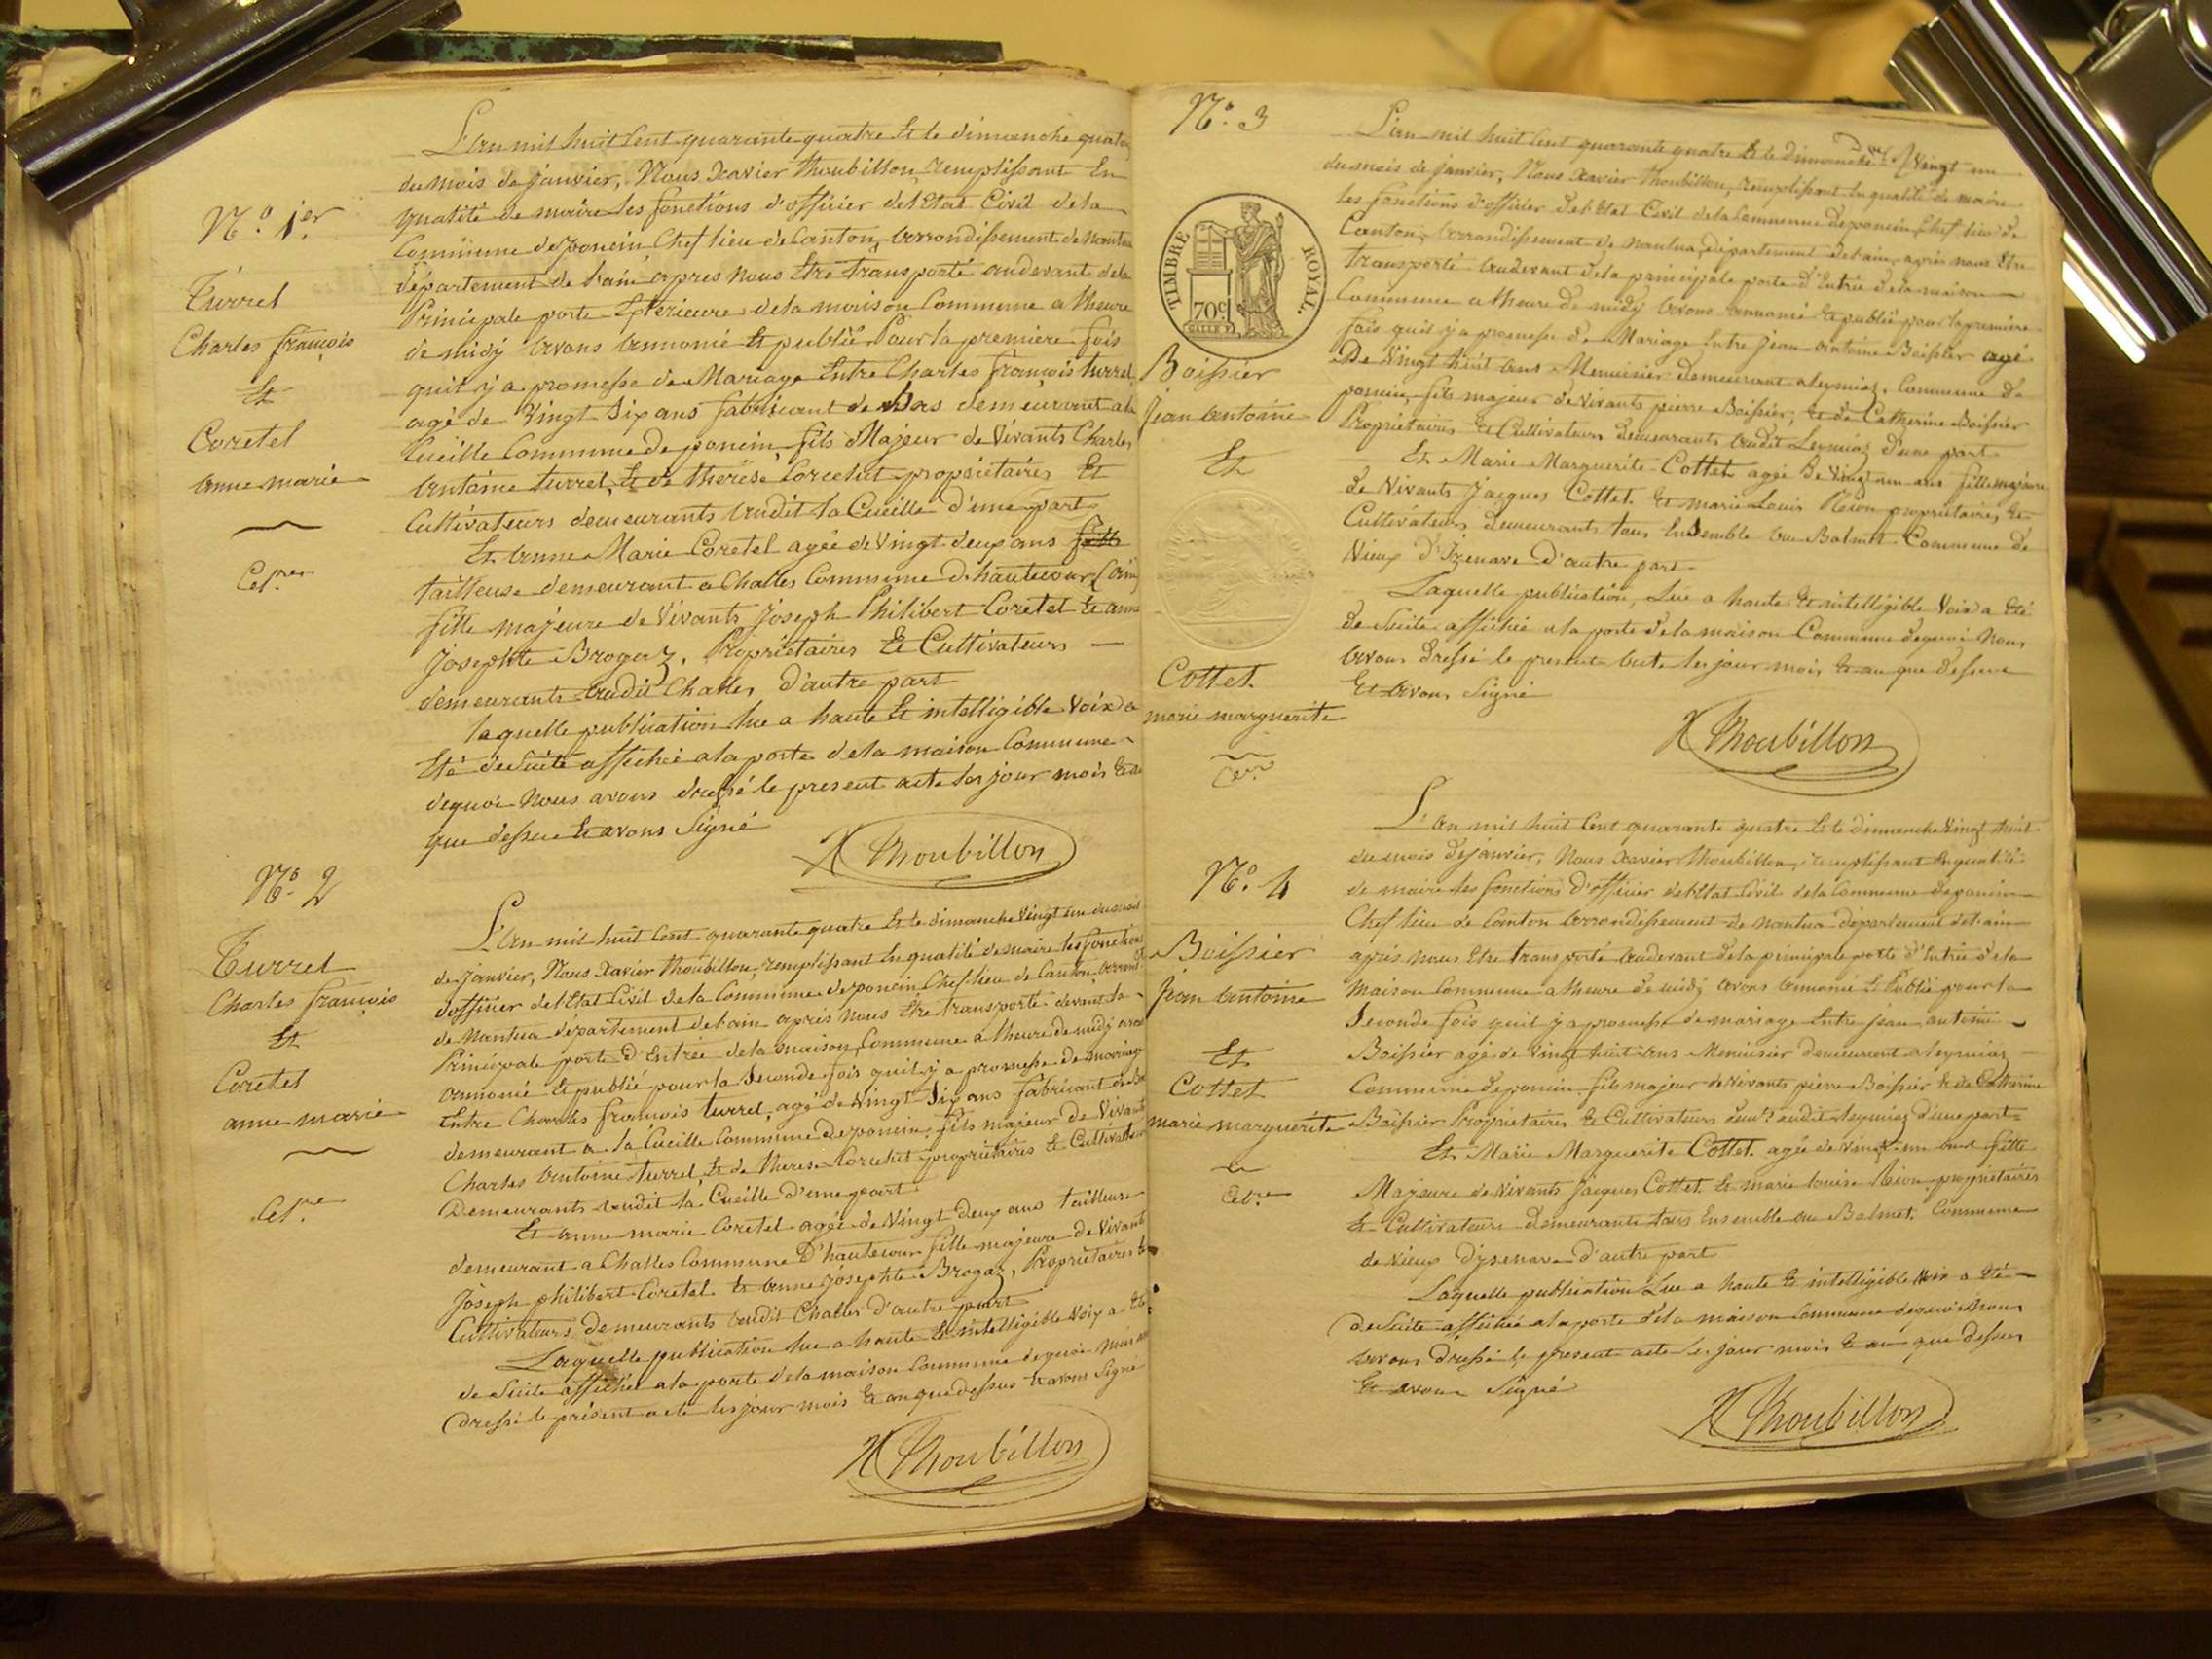 L'an mil huit Cent quarante quatre Et le dimanche quato
du mois de janvier, Nous Xavier Thoubillon, remplissant En
qualité de maire les fonctions d'officier de l'Etat Civil de la
Commune de poncin, Chef lieu de Canton, arrondissement de Nantua
département de l'ain apres nous Etre transporté audevant de la
Principale porte Exterieure de la maison Commune a l'heure
de midy avons annoncé Et publié Pour la premiere fois
quil y a promesse de Mariage Entre Charles françois turrel,
agé de Vingt Six ans fabricant de demeurant a la
Cueille Commune de poncin, fils Majeur de Vivants Charles
antoine turrel, Et de therese propriétaires Et
Cultivateurs demeurants audit la Cueille d'une part
Et anne Marie Coretel agée de Vingt deux ans fille
tailleuse demeurant a Challes Commune D'hautecour (ain)
fille majeure de Vivants Joseph Philibert Coretel Et anne
Josephte Brogaz, Propriétaires Et Cultivateurs
demeurants audit Challes d'autre part
laquelle publication lue a haute Et intelligible Voix a
Eté de Suite affichée a la porte de la maison Commune
dequoi Nous avons dressé le present acte les jour mois Et an
que dessus Et avons Signé
X Thoubillon
N.º 1er
Turrel
Charles françois
Et
Coretel
anne marie
N.º 2
Turrel
Charles françois
Et
Coretel
anne marie
L'an mil huit Cent quarante quatre Et le dimanche Vingt un du mois
de Janvier, Nous Xavier Thoubillon, remplissant En qualité de maire les fonctions
d'officier de l'Etat Civil de la Commune de poncin, Chef lieu de Canton, arrond.t
de Nantua département de l'ain après nous Etre transporté devant la
Principale porte d'Entrée de la maison Commune a l'heure de midy avons
annoncé Et publié pour la Seconde fois quil y a promesse de mariage
Entre Charles françois turrel, agé de Vingt Six ans fabricant de
demeurant a la Cueille Commune de poncin, fils majeur de Vivants
Charles antoine turrel Et de therese propriétaires Et Cultivateurs
Demeurants audit la Cueille d'une part
Et anne marie Coretel agée de Vingt deux ans tailleuse
demeurant a Challes Commune D'hautecour fille majeure de Vivants
Joseph philibert Coretel Et anne josephte Brogaz, Propriétaires Et
Cultivateurs demeurants audit Challes d'autre part
Laquelle publication lue a haute Et intelligible Voix a Eté
de Suite affichée a la porte de la maison Commune dequoi Nous
dressé le présent acte les jour mois Et an que dessus Et avons Signé
X Thoubillon
N.º 3
TIMBRE ROYAL.
70c
Boissier
Jean antoine
Et
Cottet
marie marguerite
L'an mil huit Cent quarante quatre Et le dimanche Vingt un
du mois de janvier, Nous Xavier Thoubillon, remplissant En qualité de maire
les fonctions d'officier de l'Etat Civil de la Commune de poncin Chef lieu de
Canton, arrondissement de nantua, département de l'ain, après nous Etre
transporté audevant de la principale porte d'Entrée de la maison
Commune a l'heure de midy avons annoncé Et publié pour la premiere
fois quil y a promesse de Mariage Entre Jean antoine Boissier agé
De Vingt huit ans Menuisier demeurant a leymiaz, Commune de
poncin, fils majeur de Vivants pierre Boissier, Et de Catherine Boissier
Propriétaires Et Cultivateurs demeurants audit Leymiaz D'une part
Et Marie Marguerite Cottet agée De Vingt un ans fille majeure
de Vivants Jacques Cottet Et marie Louis Rion propriétaires Et
Cultivateurs demeurants tous Ensemble au Balmet Commune de
Vieux D'Izenave D'autre part
Laquelle publication, Lue a haute Et intelligible Voix a Eté
de Suite affichée a la porte de la maison Commune dequoi Nous
avons dressé le present acte les jour mois Et an que dessus
Et avons Signé
X Thoubillon
N.º 4
Boissier
jean antoine
Et
Cottet
marie marguerite
L'an mil huit Cent quarante quatre Et le dimanche Vingt huit
du mois de janvier, Nous Xavier Thoubillon, remplissant En qualité
de maire les fonctions D'officier de l'Etat Civil de la Commune de poncin
Chef lieu de Canton arrondissement de nantua département de l'ain
après nous Etre transporté audevant de la principale porte d'Entrée de la
Maison Commune a l'heure de midy avons annoncé Et Publié pour la
Seconde fois quil y a promesse de mariage Entre jean antoine
Boissier agé de Vingt huit ans Menuisier demeurant a leymiaz
Commune de poncin fils majeur de Vivants pierre Boissier Et de Catherine
Boissier Propriétaires Et Cultivateurs dem.ts audit leymiaz d'une part
Et Marie Marguerite Cottet agée de Vingt un ans fille
Majeure de Vivants Jacques Cottet Et marie louise Rion propriétaires
Et Cultivateurs demeurants tous Ensemble au Balmet Commune
de Vieux d'yzenave d'autre part
Laquelle publication Lue a haute Et intelligible Voix a Eté
de Suite affichée a la porte de la maison Commune dequoi Nous
avons dressé le present acte les jour mois Et an que dessus
Et avons Signé
X Thoubillon